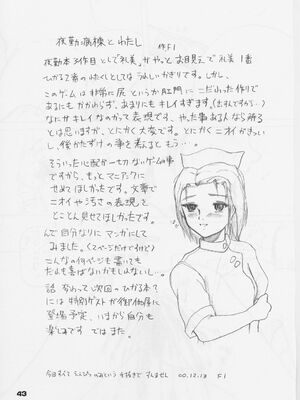 夜勤病棟とわたし 作F1
夜勤本3作目としで礼美。がやっとお目見えで礼美1番
ひかる2番のわたくしとしてはうれしいかぎりです。しかし、
このゲームは非常に尻というか肛門にこだわった作りで
あるにもかかわらず、あまりにもキレイすぎます。(出すんですが…)
なにかキレイなのかって表現です。やった事ある人なら解る
とは思いますが、とにかく大変です。とにかくニオイがきつい
し、後かたずけの事を考えるともう…。
そういった心配が一切ないゲームの事
ですから、もっとマニアックに
せめてほしかったです。文章で
ニオイや汚さの表現を
とことん見せてほしかったです。
んで自分なりにマンガにして
みました。(2ページだけですけど)
こんなの何ページも書いても
だれも喜ばないかもしれないし…。
話かわって次回のひかる本?
には特別ゲストが御体
登場予定、いまから自分も
楽しみです ではまた。
今回すべてえんぴつのみという手抜きですんません 00.12.13 F1
43